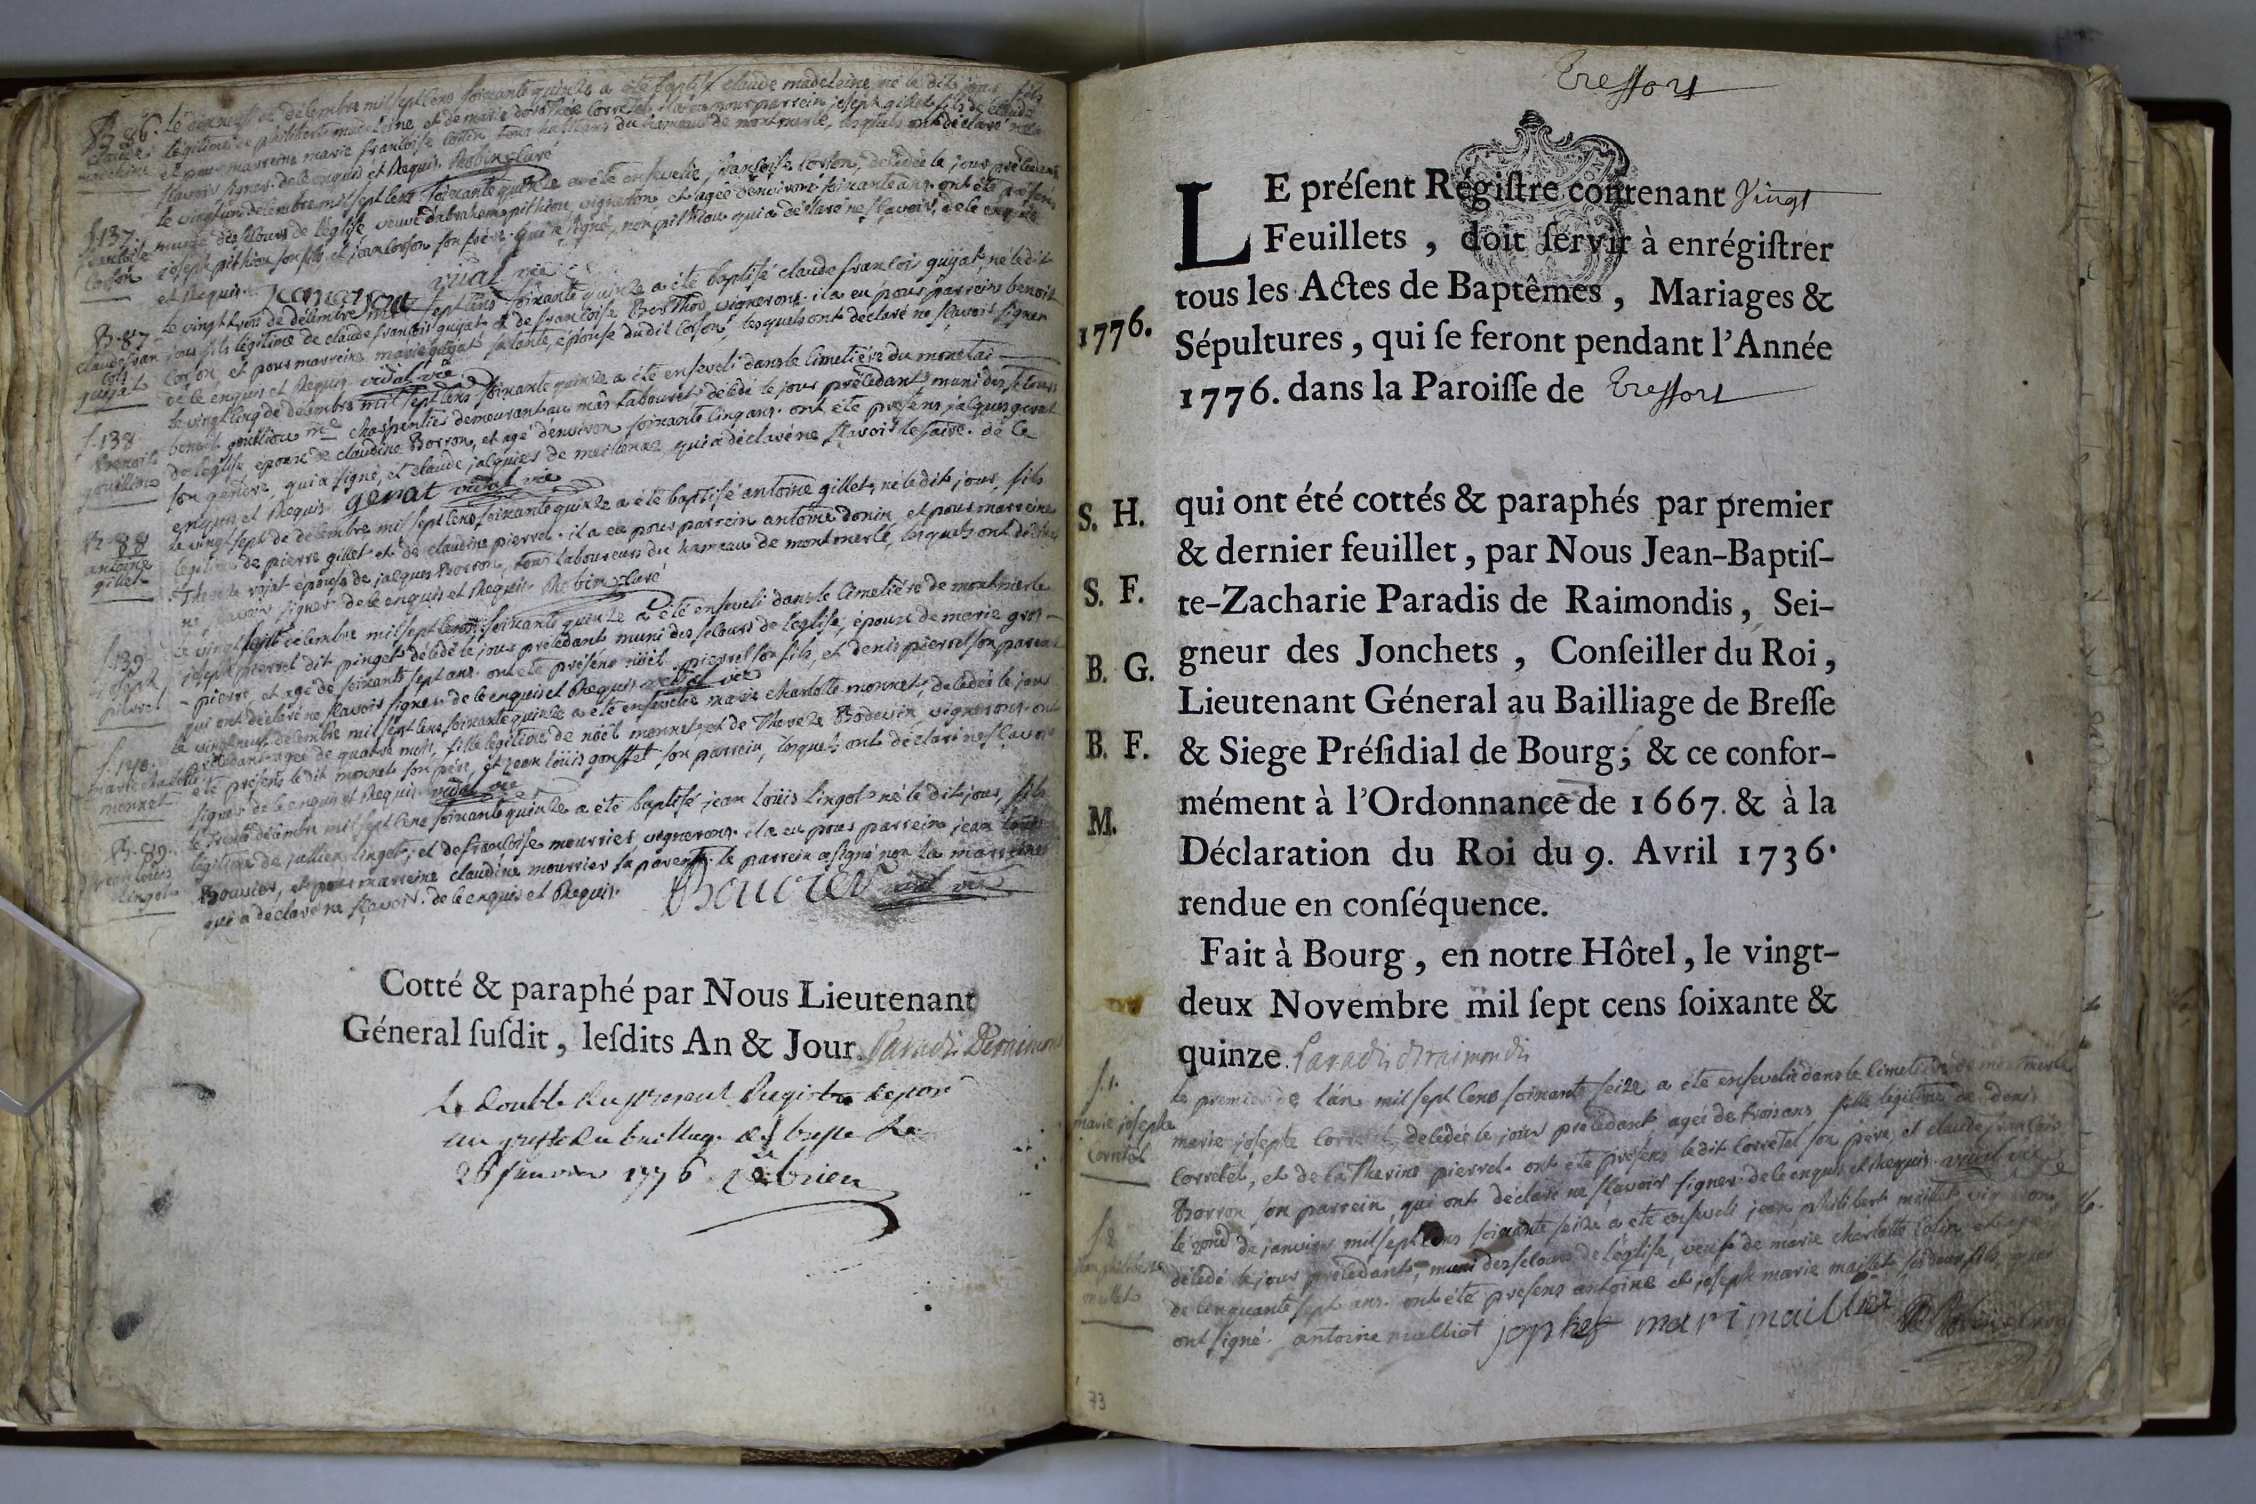 B. 86.
claude
madeleine
Le dixneuf de décembre mil sept cens soixante quinze a été baptisé claude madeleine, né le dit jour, fils
légitime de philibert madeleine et de marie dorothée Corretel. il a eu pour parrein joseph gillet fils de claude
et pour marreine marie françoise Cottin tous habitans du hameau de montmerle, lesquels ont déclaré ne
sçavoir signer de ce enquis et Requis. Robin curé
f. 137.
françoise
Corson
Le vingt un décembre mil sept cens soixante quinze a été ensevelie françoise Corson, décédée le jour précédent
munie des secours de l'église veuve d'abraham pithiou vigneron et agée d'environ soixante ans. ont été présens
joseph pithiou son fils et jean Corson son frére qui a signé, non pithiou qui a déclaré ne sçavoir, de ce enquis
et Requis. jean corson vidal vic.
B. 87
claude fran
cois
guyat
Le vingt trois de décembre mil sept cens soixante quinze a été baptisé claude françois guyat, né le dit
jour fils légitime de claude françois guyat et de françoise Berthod vignerons. il a eu pour parrein benoit
Corson et pour marreine marie guyat sa tante, épouse dudit Corson, lesquels ont déclaré ne sçavoir signer
de ce enquis et Requis vidal vic.
f. 138
Benoit
gouillon
Le vingt cinq de décembre mil sept cens soixante quinze a été enseveli dans le cimetiére du monetai
benoit gouillon me charpentier demeurant au mas tabouret décédé le jour précédent, muni des secours
de l'église époux de claudine Borron, et agé d'environ soixante cinq ans. ont été présens jacques genat
son gendre, qui a signé, et claude jacquier de meillonaz qui a déclaré ne sçavoir le faire. de ce
enquis et Requis genat vidal vic
B. 88
antoine
gillet
Le vingt sept de décembre mil sept cens soixante quinze a été baptisé antoine gillet, né le dit jour, fils
légitime de pierre gillet et de claudine pierrel. il a eu pour parrein antoine donin et pour marreine
Thereze vojat épouse de jacques Borron, tous laboureurs du hameau de montmerle, lesquels ont déclaré
ne sçavoir signer de ce enquis et Requis. Robin curé
f. 139
joseph
pierrel
Le vingt sept décembre mil sept cens soixante quinze a été enseveli dans le cimetiére de montmerle
joseph pierrel dit pinget décédé le jour précédent muni des secours de l'église, époux de marie gros-
-pierre, et agé de soixante sept ans. ont été présens noël pierrel son fils, et denis pierrel son parent
qui ont déclaré ne sçavoir signer de ce enquis et Requis vidal vic
f. 140.
marie charlotte
monnet
Le vingt neuf décembre mil sept cens soixante quinze a été ensevelie marie charlotte monnet, décédée le jour
précédent agée de quatre mois, fille légitime de noël monnet et de Thereze Bodevin vignerons. ont
été présens le dit monnet son pére, et jean loüis gonffet son parrein, lesquels ont déclaré ne sçavoir
signer de ce enquis et Requis vidal vic
B. 89.
jean loüis
lingot
Le trente décembre mil sept cens soixante quinze a été baptisé jean loüis lingot né le dit jour, fils
légitime de jullien lingot, et de françoise mourrier, vignerons. il a eu pour parrein jean loüis
Bouvier, et pour marreine claudine mourrier sa parente. le parrein a signé non la marreine
qui a déclaré ne sçavoir. de ce enquis et Requis. Bouvier vidal vic
Cotté & paraphé par Nous Lieutenant
Géneral ſuſdit, leſdits An & Jour. Paradis Deraimondis
Le double du present Registre deposé
au greffe du bailliage de bresse le
26 janvier 1776.
Tressort
LE préſent Régiſtre contenant Vingt
Feuillets, doit ſervir à enrégiſtrer
tous les Actes de Baptêmes, Mariages &
1776. Sépultures, qui ſe feront pendant l'Année
1776. dans la Paroiſſe de Tressort
S. H. qui ont été cottés & paraphés par premier
& dernier feuillet, par Nous Jean-Baptiſ-
S. F. te-Zacharie Paradis de Raimondis, Sei-
B. G. gneur des Jonchets, Conſeiller du Roi,
Lieutenant Géneral au Bailliage de Breſſe
B. F. & Siege Préſidial de Bourg; & ce confor-
M. mément à l'Ordonnance de 1667. & à la
Déclaration du Roi du 9. Avril 1736.
rendue en conſéquence.
Fait à Bourg, en notre Hôtel, le vingt-
deux Novembre mil ſept cens ſoixante &
quinze. Paradis deraimondis
f. 1.
marie josephe
Corretel
Le premier de l'an mil sept cens soixante seize a été ensevelie dans le cimetiére de montmerle
marie josephe Corretel décédée le jour précédent agée de trois ans fille légitime de denis
Corretel, et de Catherine pierrel. ont été présens ledit Corretel son pére, et claude françois
Borron son parrein, qui ont déclaré ne sçavoir signer de ce enquis et Requis. vidal vic
f. 2
jean philibert
maillet
de janvier mil sept cens soixante seize a été enseveli jean philibert maillet vigneron
décédé le jour précédent, muni des secours de l'église, veuf de marie charlotte Colin et agé
de cinquante sept ans. ont été présens antoine et joseph marie maillet ses deux fils qui
ont signé. antoine malliet josphe mari maillet Robin curé
73